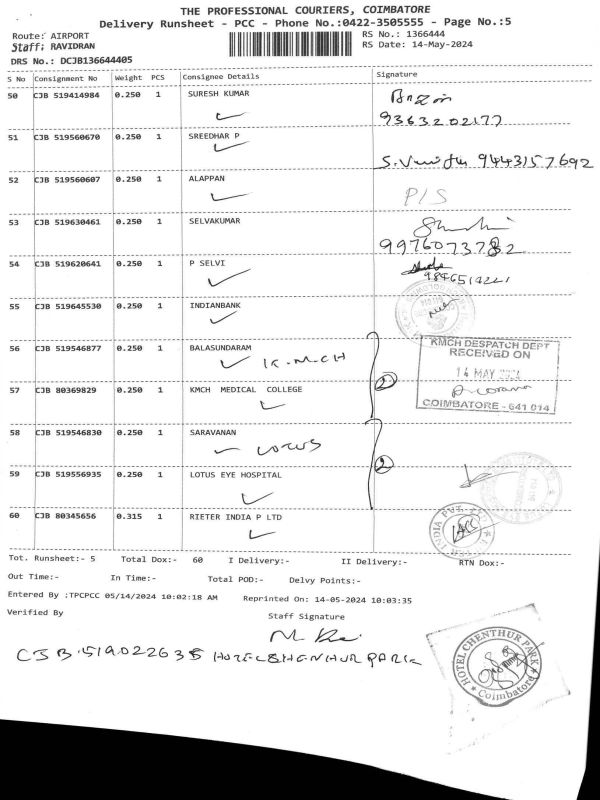 THE PROFESSIONAL COURIERS, COIMBATORE
Delivery Runsheet - PCC - Phone No.:0422-3505555 - Page No.:5
Route: AIRPORT
Staff: RAVIDRAN
DRS No.: DCJB136644405
RS No.: 1366444
RS Date: 14-May-2024
S No Consignment No Weight PCS Consignee Details Signature
50 CJB 519414984 0.250 1 SURESH KUMAR
9363202177
51 CJB 519560670 0.250 1 SREEDHAR P
9443157692
52 CJB 519560607 0.250 1 ALAPPAN P/S
53 CJB 519630461 0.250 1 SELVAKUMAR
9976073782
54 CJB 519620641 0.250 1 P SELVI
55 CJB 519645530 0.250 1 INDIANBANK
56 CJB 519546877 0.250 1 BALASUNDARAM
K.M.C.H
2
KMCH DESPATCH DEPT
RECEIVED ON
14 MAY 2024
COIMBATORE - 641 014
57 CJB 80369829 0.250 1 KMCH MEDICAL COLLEGE
58 CJB 519546830 0.250 1 SARAVANAN
LOTUS
2
59 CJB 519556935 0.250 1 LOTUS EYE HOSPITAL
60 CJB 80345656 0.315 1 RIETER INDIA P LTD
Tot. Runsheet:- 5 Total Dox:- 60 I Delivery:- II Delivery:- RTN Dox:-
Out Time:- In Time:- Total POD:- Delvy Points:-
Entered By :TPCPCC 05/14/2024 10:02:18 AM Reprinted On: 14-05-2024 10:03:35
Verified By
Staff Signature
CJB.519022635 HOTEL CHENTHUR PARK
HOTEL CHENTHUR PARK
Coimbatore